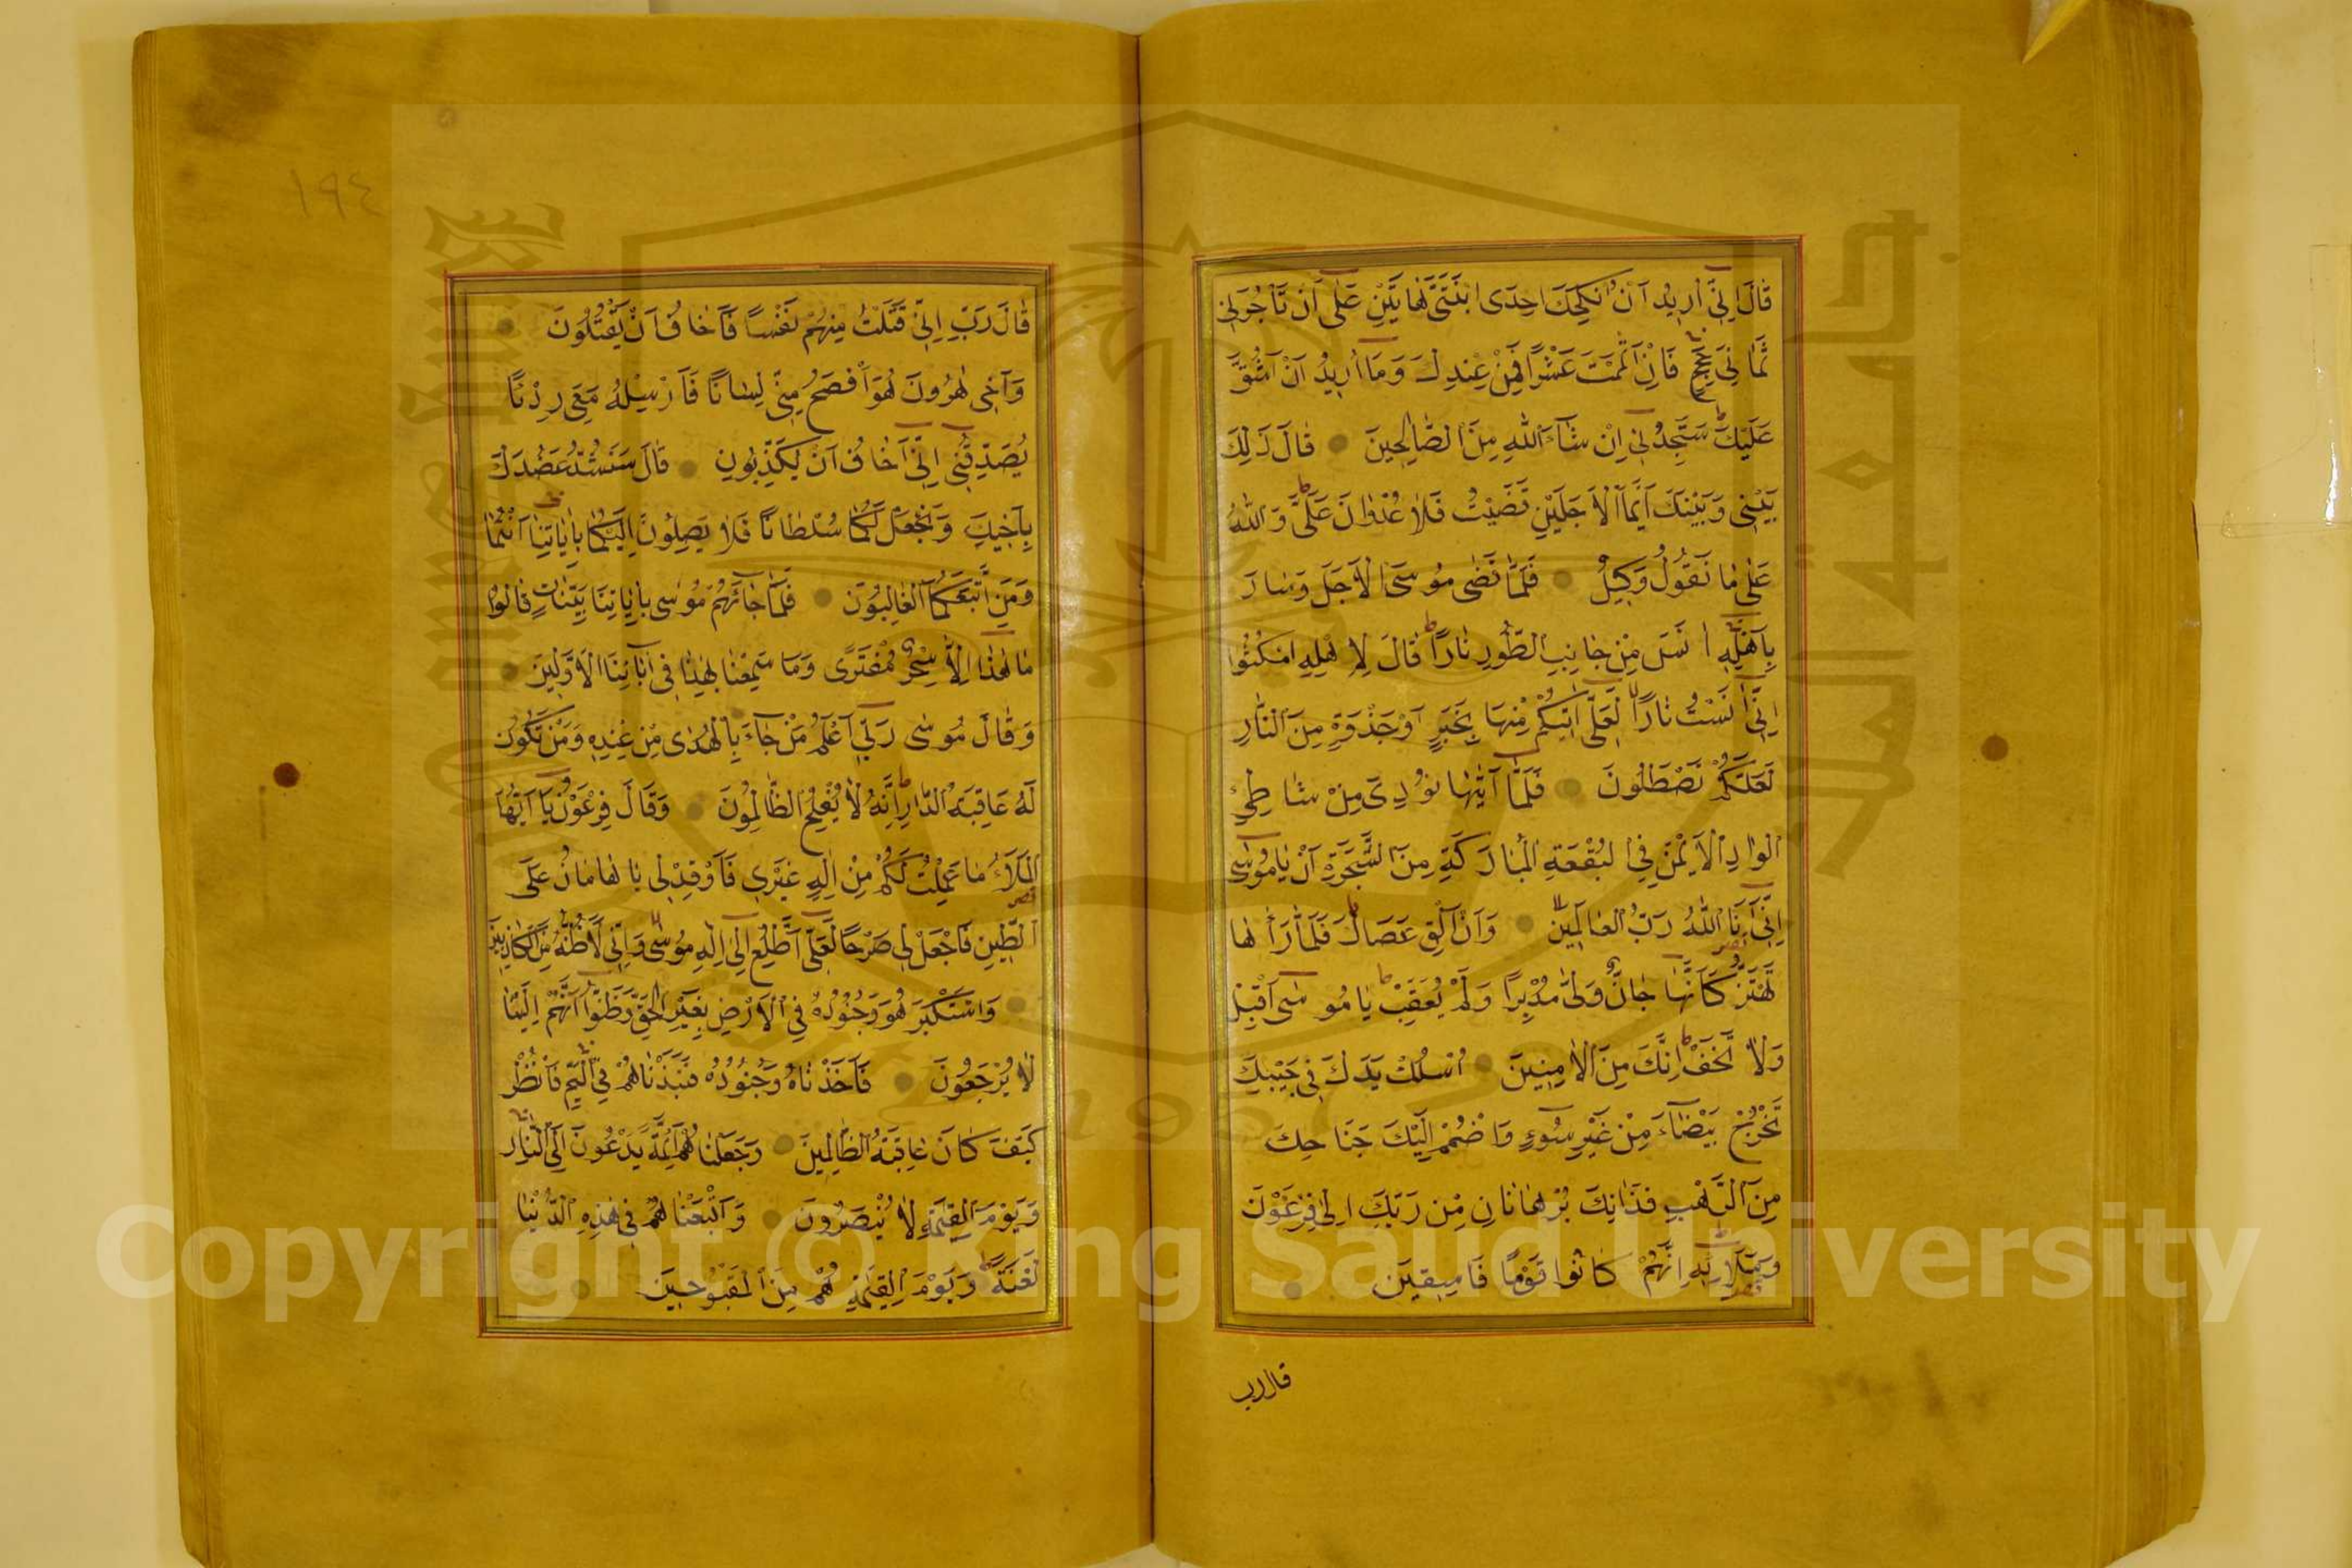 قَالَ اِنّٖٓى اُرٖيدُ اَنْ اُنْكِحَكَ اِحْدَى ابْنَتَىَّ هَاتَيْنِ عَلٰٓى اَنْ تَأْجُرَنٖى
ثَمَانِىَ حِجَجٍ فَاِنْ اَتْمَمْتَ عَشْرًا فَمِنْ عِنْدِكَ وَمَٓا اُرٖيدُ اَنْ اَشُقَّ
عَلَيْكَ سَتَجِدُنٖٓى اِنْ شَٓاءَ اللّٰهُ مِنَ الصَّالِحٖينَ قَالَ ذٰلِكَ
بَيْنٖى وَبَيْنَكَ اَيَّمَا الْاَجَلَيْنِ قَضَيْتُ فَلَا عُدْوَانَ عَلَىَّ وَاللّٰهُ
عَلٰى مَا نَقُولُ وَكٖيلٌ فَلَمَّا قَضٰى مُوسَى الْاَجَلَ وَسَارَ
بِاَهْلِهٖٓ اٰنَسَ مِنْ جَانِبِ الطُّورِ نَارًا قَالَ لِاَهْلِهِ امْكُثُٓوا
اِنّٖٓى اٰنَسْتُ نَارًا لَعَلّٖٓى اٰتٖيكُمْ مِنْهَا بِخَبَرٍ اَوْ جَذْوَةٍ مِنَ النَّارِ
لَعَلَّكُمْ تَصْطَلُونَ فَلَمَّٓا اَتٰيهَا نُودِىَ مِنْ شَاطِئِ
الْوَادِ الْاَيْمَنِ فِى الْبُقْعَةِ الْمُبَارَكَةِ مِنَ الشَّجَرَةِ اَنْ يَا مُوسٰٓى
اِنّٖٓى اَنَا اللّٰهُ رَبُّ الْعَالَمٖينَ وَاَنْ اَلْقِ عَصَاكَ فَلَمَّا رَاٰهَا
تَهْتَزُّ كَاَنَّهَا جَٓانٌّ وَلّٰى مُدْبِرًا وَلَمْ يُعَقِّبْ يَا مُوسٰٓى اَقْبِلْ
وَلَا تَخَفْ اِنَّكَ مِنَ الْاٰمِنٖينَ اُسْلُكْ يَدَكَ فٖى جَيْبِكَ
تَخْرُجْ بَيْضَٓاءَ مِنْ غَيْرِ سُٓوءٍ وَاضْمُمْ اِلَيْكَ جَنَاحَكَ
مِنَ الرَّهْبِ فَذَانِكَ بُرْهَانَانِ مِنْ رَبِّكَ اِلٰى فِرْعَوْنَ
وَمَلَا۬ئِهٖ اِنَّهُمْ كَانُوا قَوْمًا فَاسِقٖينَ
قال رب
١٩٤
قَالَ رَبِّ اِنّٖى قَتَلْتُ مِنْهُمْ نَفْسًا فَاَخَافُ اَنْ يَقْتُلُونِ
وَاَخٖى هٰرُونُ هُوَ اَفْصَحُ مِنّٖى لِسَانًا فَاَرْسِلْهُ مَعِىَ رِدْءًا
يُصَدِّقُنٖٓى اِنّٖٓى اَخَافُ اَنْ يُكَذِّبُونِ قَالَ سَنَشُدُّ عَضُدَكَ
بِاَخٖيكَ وَنَجْعَلُ لَكُمَا سُلْطَانًا فَلَا يَصِلُونَ اِلَيْكُمَا بِاٰيَاتِنَٓا اَنْتُمَا
وَمَنِ اتَّبَعَكُمَا الْغَالِبُونَ فَلَمَّا جَٓاءَهُمْ مُوسٰى بِاٰيَاتِنَا بَيِّنَاتٍ قَالُوا
مَا هٰذَٓا اِلَّا سِحْرٌ مُفْتَرًى وَمَا سَمِعْنَا بِهٰذَا فٖٓى اٰبَٓائِنَا الْاَوَّلٖينَ
وَقَالَ مُوسٰى رَبّٖٓى اَعْلَمُ بِمَنْ جَٓاءَ بِالْهُدٰى مِنْ عِنْدِهٖ وَمَنْ تَكُونُ
لَهُ عَاقِبَةُ الدَّارِ اِنَّهُ لَا يُفْلِحُ الظَّالِمُونَ وَقَالَ فِرْعَوْنُ يَٓا اَيُّهَا
الْمَلَاُ مَا عَلِمْتُ لَكُمْ مِنْ اِلٰهٍ غَيْرٖى فَاَوْقِدْ لٖى يَا هَامَانُ عَلَى
الطّٖينِ فَاجْعَلْ لٖى صَرْحًا لَعَلّٖٓى اَطَّلِعُ اِلٰٓى اِلٰهِ مُوسٰى وَاِنّٖى لَاَظُنُّهُ مِنَ الْكَاذِبٖينَ
وَاسْتَكْبَرَ هُوَ وَجُنُودُهُ فِى الْاَرْضِ بِغَيْرِ الْحَقِّ وَظَنُّٓوا اَنَّهُمْ اِلَيْنَا
لَا يُرْجَعُونَ فَاَخَذْنَاهُ وَجُنُودَهُ فَنَبَذْنَاهُمْ فِى الْيَمِّ فَانْظُرْ
كَيْفَ كَانَ عَاقِبَةُ الظَّالِمٖينَ وَجَعَلْنَاهُمْ اَئِمَّةً يَدْعُونَ اِلَى النَّارِ
وَيَوْمَ الْقِيٰمَةِ لَا يُنْصَرُونَ وَاَتْبَعْنَاهُمْ فٖى هٰذِهِ الدُّنْيَا
لَعْنَةً وَيَوْمَ الْقِيٰمَةِ هُمْ مِنَ الْمَقْبُوحٖينَ
Copyright © King Saud University